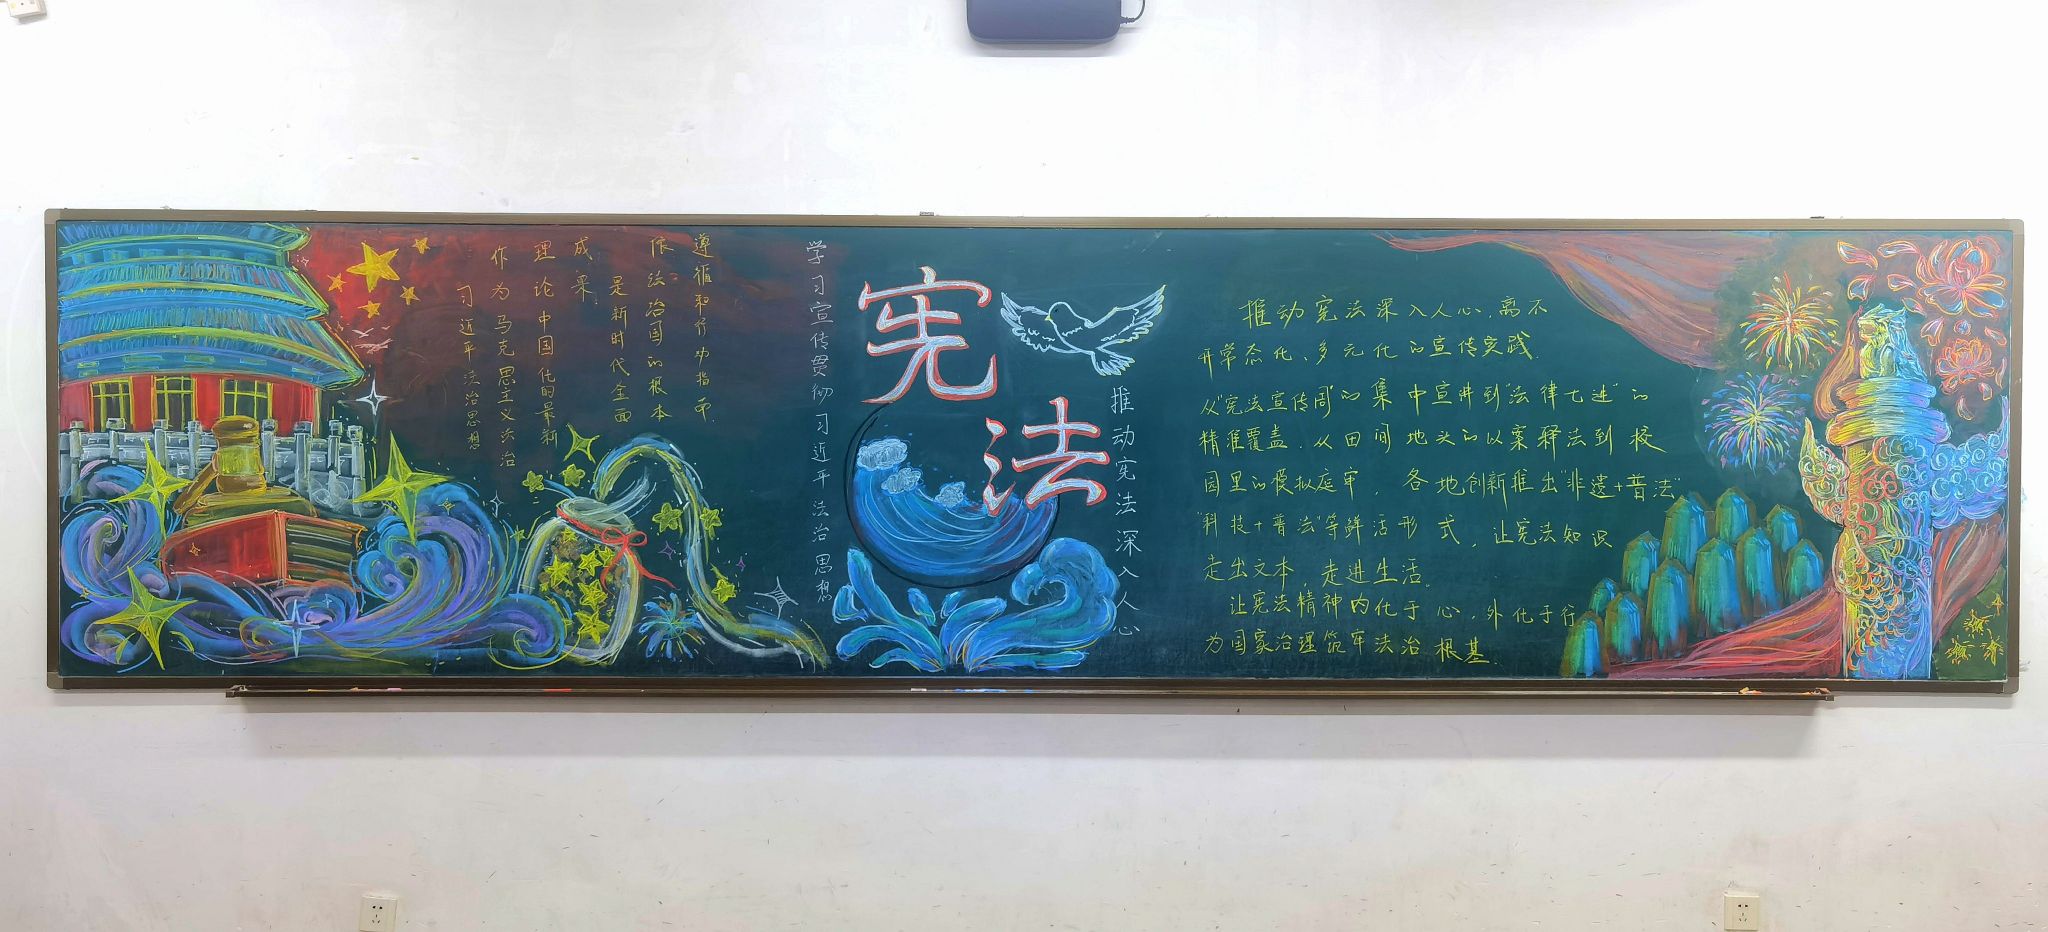 习近平法治思想
作为马克思主义法治
理论中国化的最新
成果，
是新时代全面
依法治国的根本
遵循和行动指南
学习宣传贯彻习近平法治思想
宪法
推动宪法深入人心
推动宪法深入人心，离不
开常态化、多元化的宣传实践。
从“宪法宣传周”的集中宣讲到“法律七进”的
精准覆盖，从田间地头的以案释法到校
园里的模拟庭审，各地创新推出“非遗+普法”
“科技+普法”等鲜活形式，让宪法知识
走出文本，走进生活。
让宪法精神内化于心，外化于行
为国家治理筑牢法治根基。